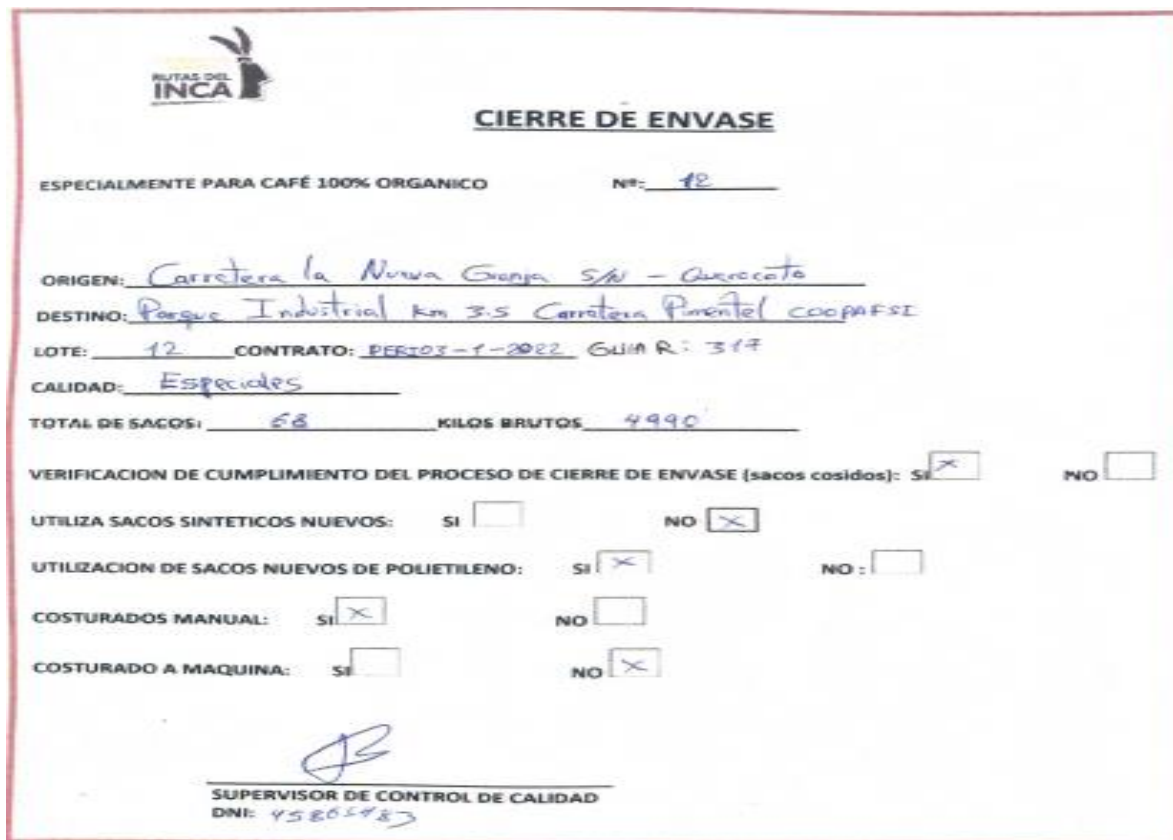 RUTAS DEL
INCA
CIERRE DE ENVASE
ESPECIALMENTE PARA CAFÉ 100% ORGANICO Nº: 12
ORIGEN: Carretera la Nueva Granja S/N - Querocoto
DESTINO: Parque Industrial Km 3.5 Carretera Pimentel COOPAFSI
LOTE: 12 CONTRATO: PERI03-1-2022 GUIA R: 317
CALIDAD: Especiales
TOTAL DE SACOS: 68 KILOS BRUTOS 4990
VERIFICACION DE CUMPLIMIENTO DEL PROCESO DE CIERRE DE ENVASE (sacos cosidos): SI X NO
UTILIZA SACOS SINTETICOS NUEVOS: SI NO X
UTILIZACION DE SACOS NUEVOS DE POLIETILENO: SI X NO :
COSTURADOS MANUAL: SI X NO
COSTURADO A MAQUINA: SI NO X
SUPERVISOR DE CONTROL DE CALIDAD
DNI: